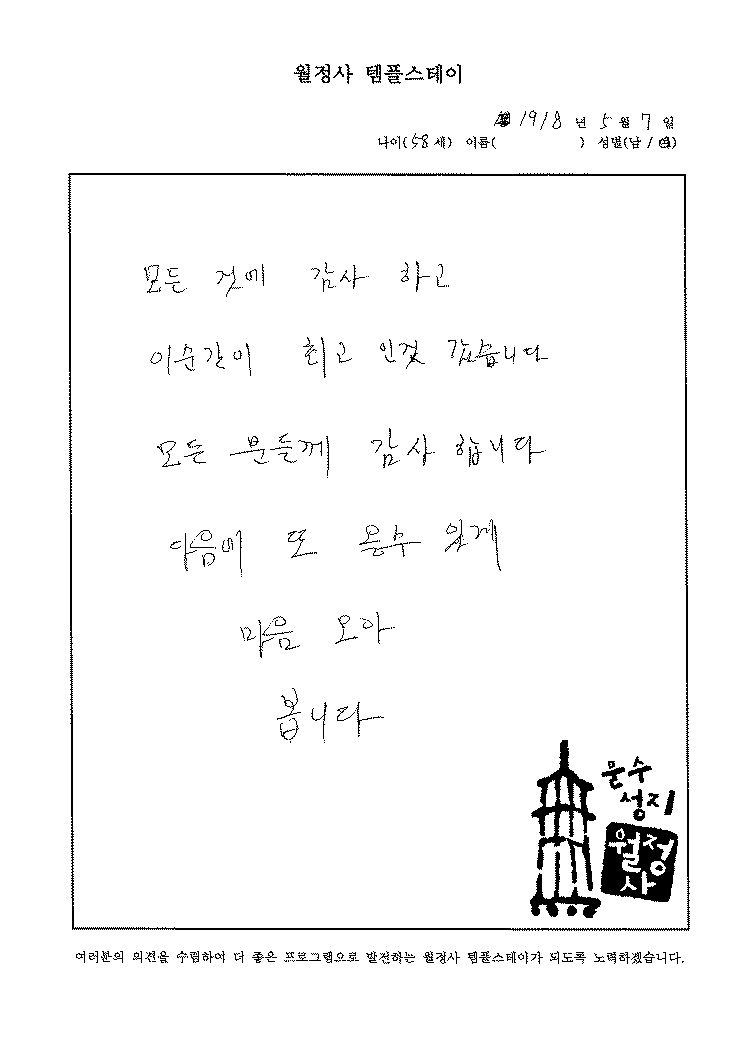 월정사 템플스테이
1918 년 5 월 7 일
나이(58세) 이름( ) 성별(남 / 여)
모든 것에 감사 하고
이순간이 최고 인것 같습니다
모든 분들께 감사 합니다
다음에 또 올수 있게
마음 모아
봅니다
문수
성지
월정
사
여러분의 의견을 수렴하여 더 좋은 프로그램으로 발전하는 월정사 템플스테이가 되도록 노력하겠습니다.